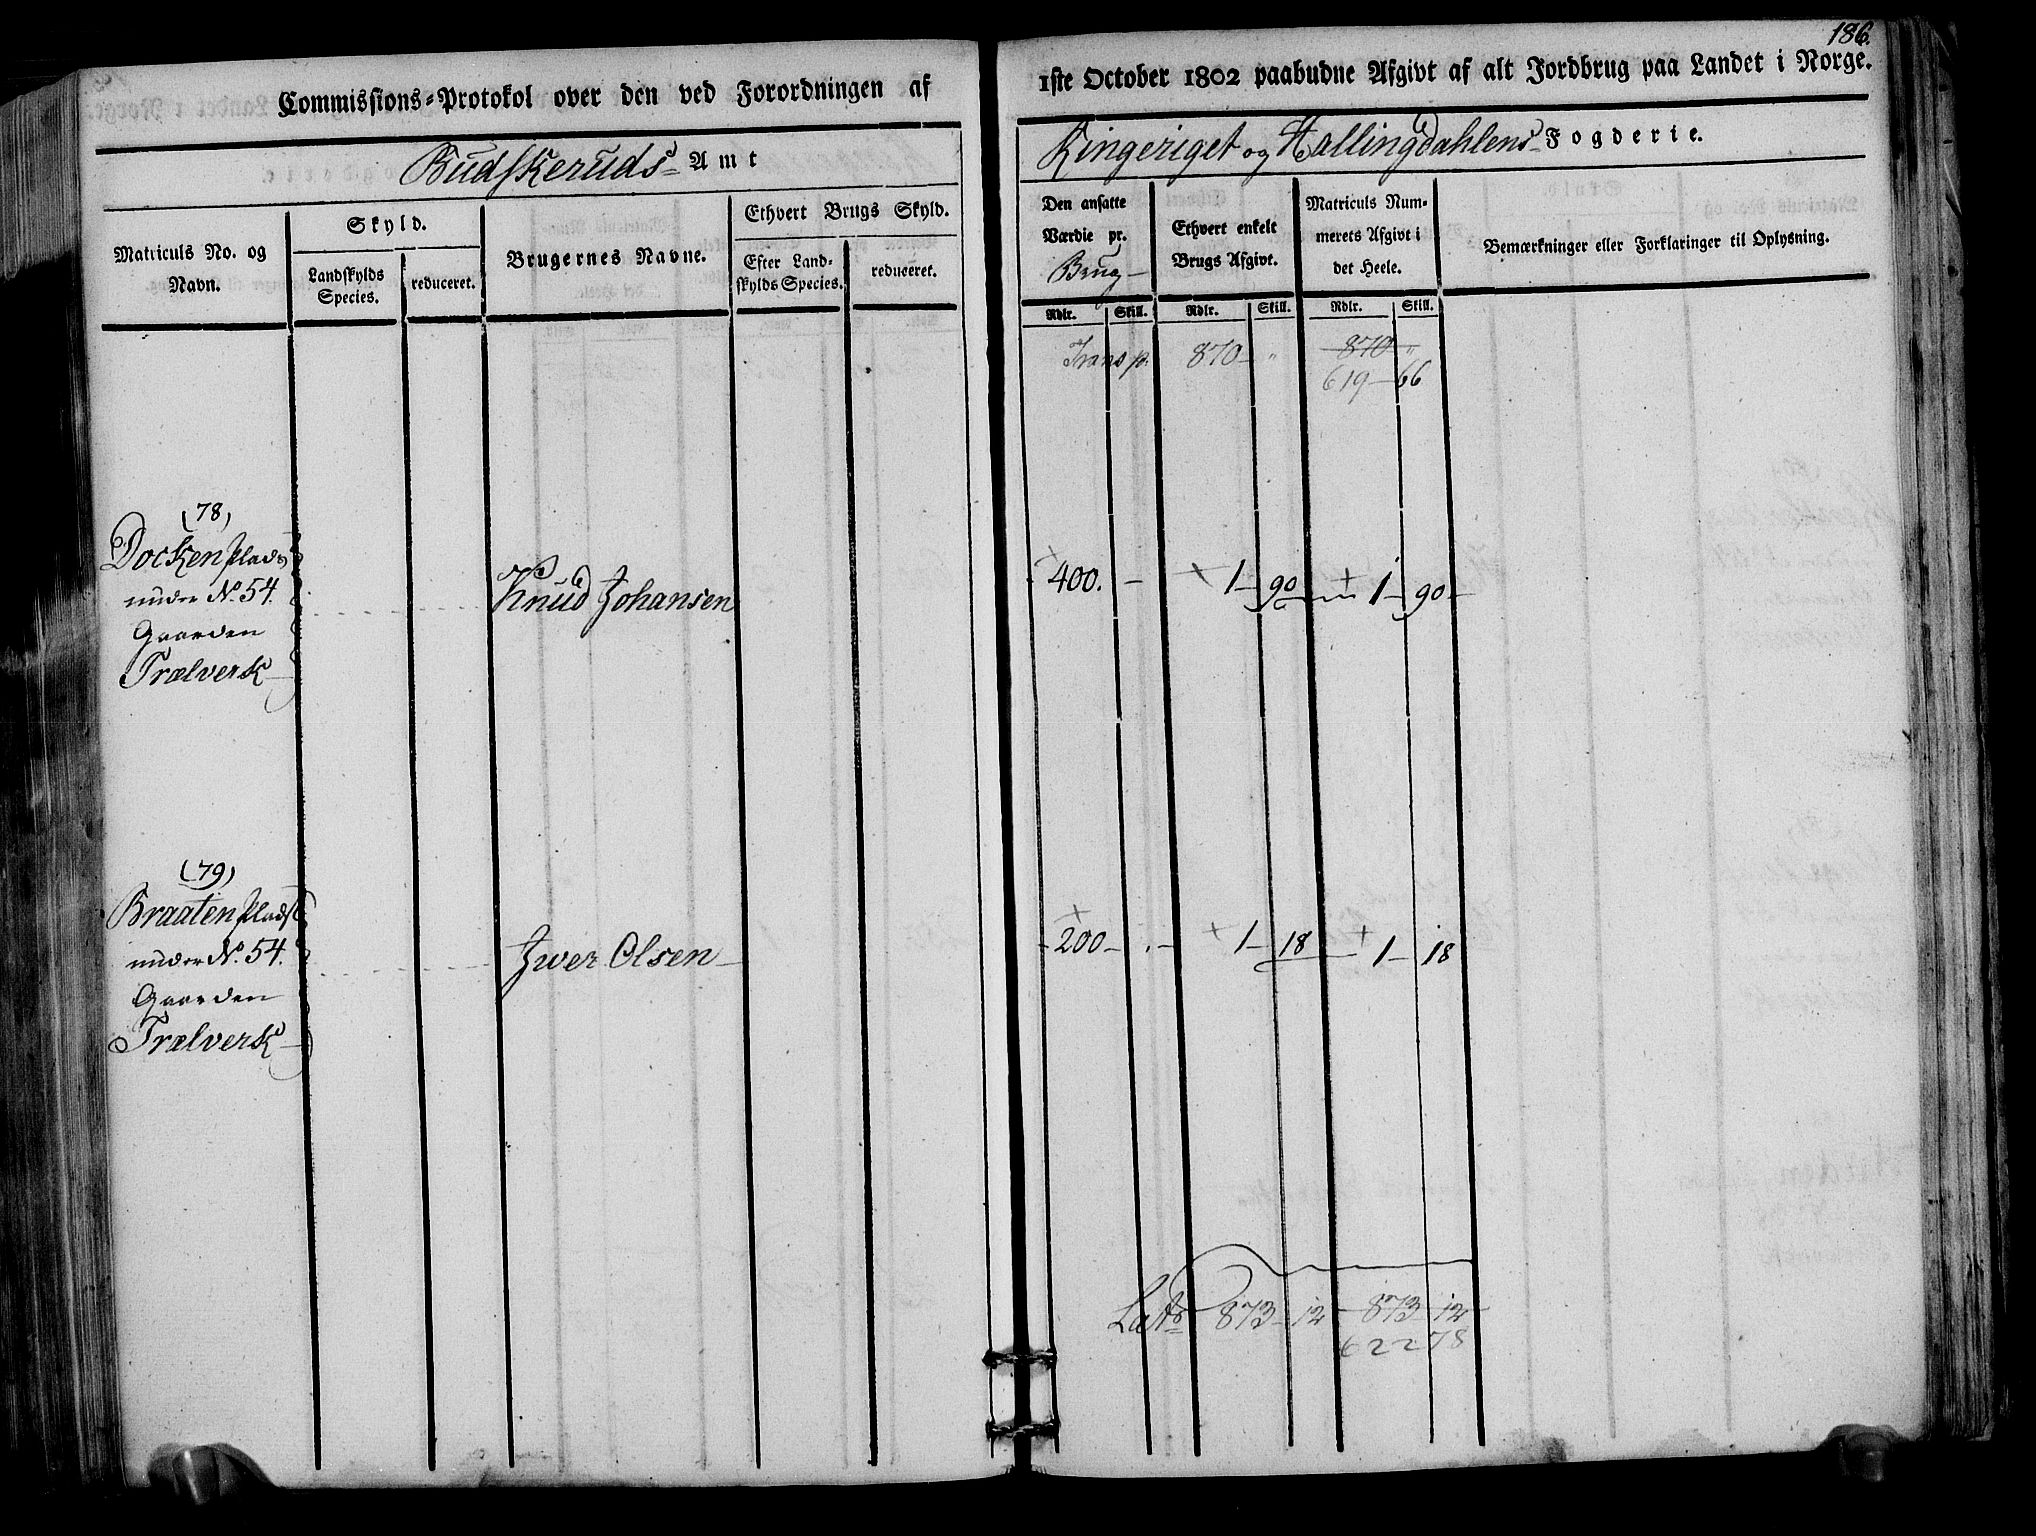 186.
Commissions=Protokol over den ved Forordningen af 1ste October 1802 paabudne Afgivt af alt Jordbrug paa Landet i Norge.
Budskeruds Amt
Ringeriget og Hallingdahlens Fogderie.
Matriculs No. og Navn.
Skyld.
Landskylds Species.
reduceret.
Brugernes Navne.
Ethvert Brugs Skyld.
Efter Land-skylds Species.
reduceret.
Den ansatte Værdie pr. Brug
Ethvert enkelt Brugs Afgivt.
Matriculs Num-merets Afgivt i det Heele.
Bemærkninger eller Forklaringer til Oplysning.
Rdlr. Skill. Rdlr. Skill. Rdlr. Skill.
Transp. 870 - " 870 "
619 - 66
(78)
Docken plads
under No. 54.
Gaarden
Trælverk
Knud Johansen
400. - 1 - 90 1 - 90
(79)
Braaten plads
under No. 54.
Gaarden
Trælverk
Iwer Olsen
200 - 1 - 18 1 - 18
Lats 873 - 12 873 - 12
622 78